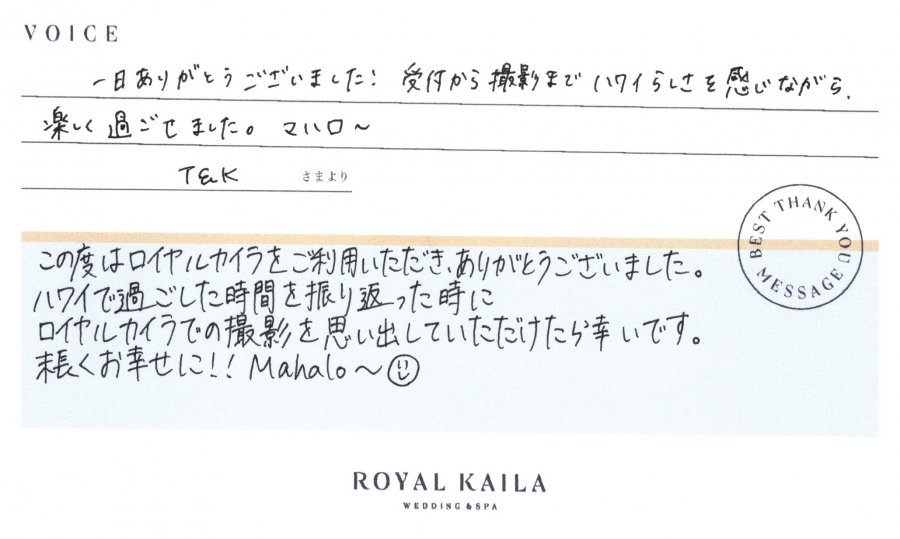 VOICE
一日ありがとうございました! 受付から撮影まで ハワイらしさを感じながら、
楽しく過ごせました。 マハロ〜
T&K さまより
BEST THANK YOU MESSAGE
この度はロイヤルカイラをご利用いただき、ありがとうございました。
ハワイで過ごした時間を振り返った時に
ロイヤルカイラでの撮影を思い出していただけたら幸いです。
末長くお幸せに!! Mahalo〜
ROYAL KAILA
WEDDING & SPA